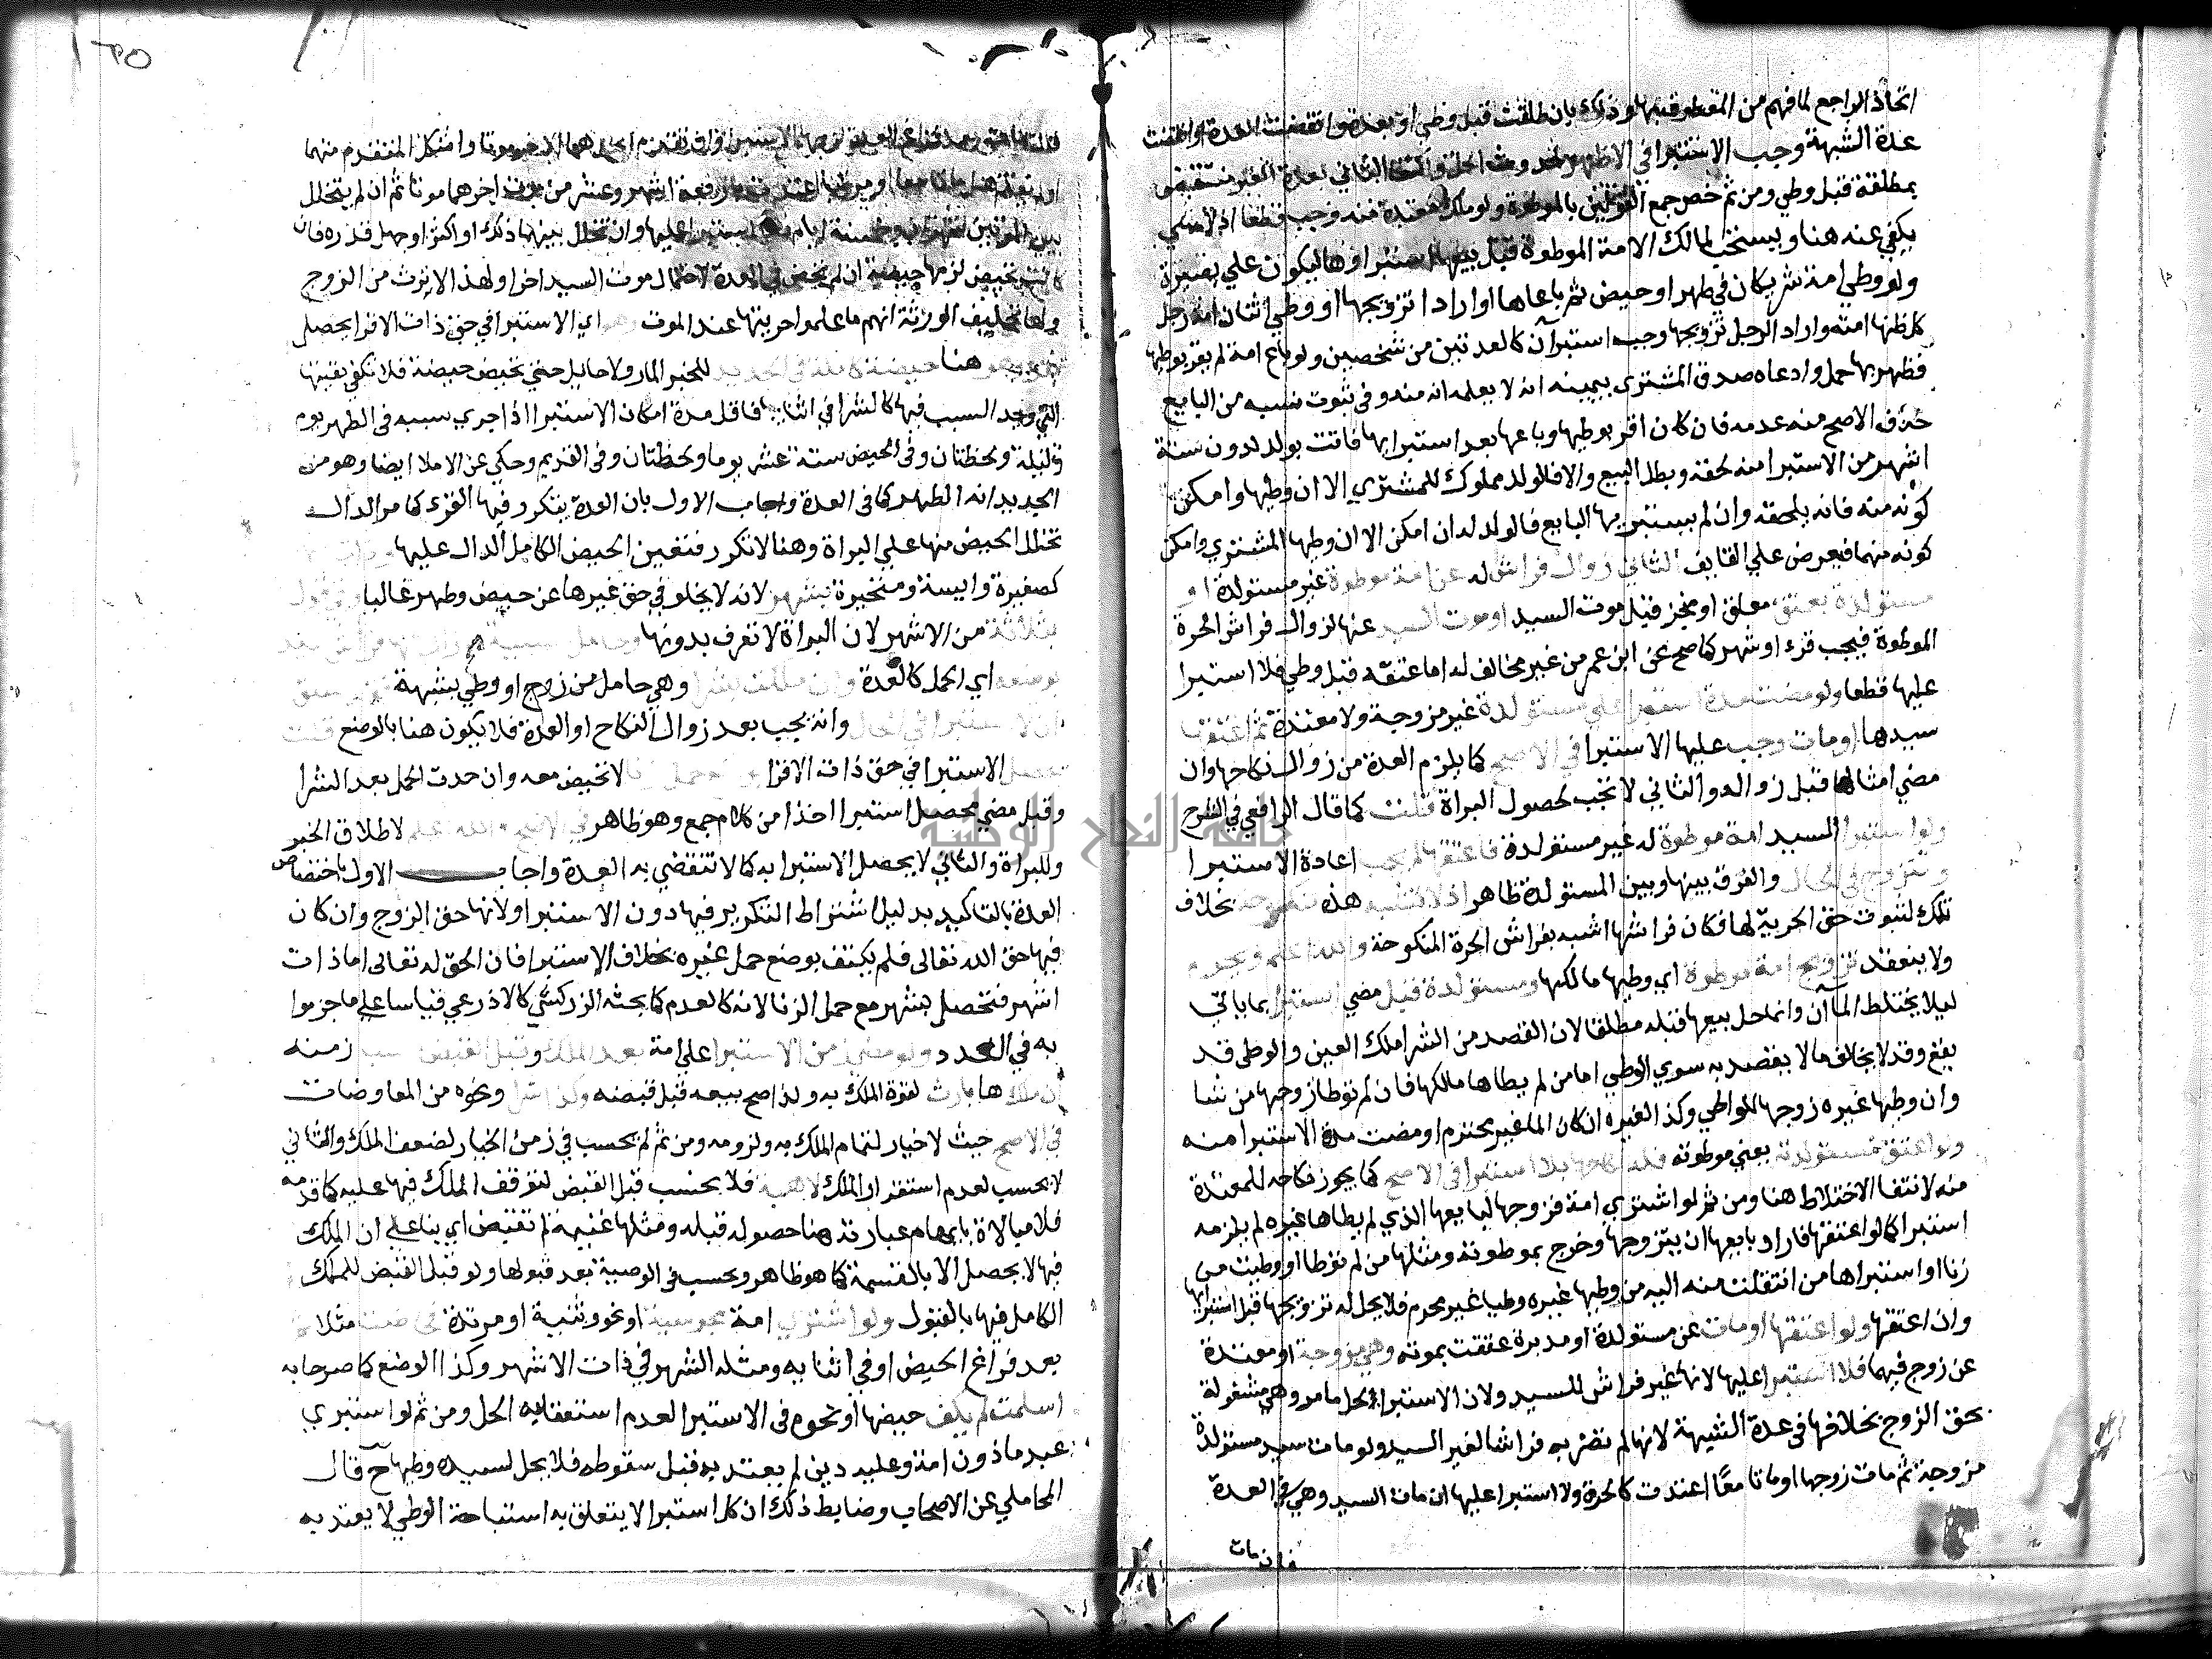 اتحاذ الراجع لما فهم من المعطوفيها وذلك بان طلقت قبل وطي او بعده وانقضت العدة او انقضت
عدة الشبهة وجب الاستبرا في الاظهر لحدوث الحل واكتفا الثاني بعدة الغير منتقض
بمطلقة قبل وطي ومن ثم خص جمع القولين بالموطوة ولو ملك معتدة منه وجب قطعا اذ لا شي
يكفي عنه هنا ويستحب لمالك الامة الموطوة قبل بيعها استبراوها ليكون علي بصيرة
ولو وطي امة شريكان في طهر او حيض ثم باعاها او ارادا تزويجها او وطي اثنان امة رجل
كل ظنها امته واراد الرجل تزويجها وجب استبرآن كالعدتين من شخصين ولو باع امة لم يقر بوطيها
فظهر بها حمل وادعاه صدق المشتري بيمينه انه لا يعلمه انه منه وفي ثبوت نسبه من البايع
خلاف الاصح منه عدمه فان كان اقر بوطيها وباعها بعد استبرايها فاتت بولد لدون ستة
اشهر من الاستبرا منه لحقه وبطل البيع والا فالولد مملوك للمشتري الا ان وطيها وامكن
كونه منه فانه يلحقه وان لم يستبريها البايع فالولد له ان امكن الا ان وطيها المشتري وامكن
كونه منهما فيعرض علي القايف الثاني زوال فراش له عن امة موطوة غير مستولدة او
مستولدة بعتق معلق او منجز قبل موت السيد او موت السيد عنها لزوال فراش الحرة
الموطوة فيجب قرء او شهر كما صح عن ابن عمر من غير مخالف له اما عتقه قبل وطي فلا استبرا
عليها قطعا ولو مضت مدة استبرا علي مستولدة غير مزوجة ولا معتدة ثم اعتقها
سيدها او مات وجب عليها الاستبرا في الاصح كما يلزم العدة من زوال نكاحها وان
مضي امثالها قبل زواله والثاني لا تجب لحصول البراة قلت كما قال الرافعي في الشرح
ولو استبرا السيد امة موطوة له غير مستولدة فاعتقها لم يجب اعادة الاستبرا
وتتزوج في الحال والفرق بينها وبين المستولدة ظاهر اذ لا تشبه هذه منكوحة بخلاف
تلك لثبوت حق الحرية لها فكان فراشها اشبه بفراش الحرة المنكوحة والله اعلم ويحرم
ولا ينعقد تزويج امة موطوة اي وطيها مالكها ومستولدة قبل مضي استبرا بما ياتي
ليلا يختلط المآن وانما حل بيعها قبله مطلقا لان القصد من الشرا ملك العين والوطي قد
يقع وقد لا بخلاف ما لا يقصد به سوي الوطي اما من لم يطاها مالكها فان لم توطا زوجها من شا
وان وطيها غيره زوجها للواطي وكذا لغيره ان كان الما غير محترم او مضت مدة الاستبرا منه
ولو اعتق مستولدته يعني موطوته فله نكاحها بلا استبرا في الاصح كما يجوز نكاحه للمعتدة
منه لانتفا الاختلاط هنا ومن ثم لو اشتري امة فزوجها لبايعها الذي لم يطاها غيره لم يلزمه
استبرا كما لو اعتقها فاراد بايعها ان يتزوجها وخرج بموطوته ومثلها من لم توطا او وطيت من
زنا او استبراها من انتقلت منه اليه من وطيها غيره وطيا غير محرم فلا يحل له تزويجها قبل استبرايها
وان اعتقها ولو اعتقها او مات عن مستولدة او مدبرة عتقت بموته وهي مزوجة او معتدة
عن زوج فيهما فلا استبرا عليها لانها غير فراش للسيد ولان الاستبرا لحل ما مر وهي مشغولة
بحق الزوج بخلافها في عدة الشبهة لانها لم تصر به فراشا لغير السيد ولو مات سيد مستولدة
مزوجة ثم مات زوجها او ماتا معًا اعتدت كالحرة ولا استبرا عليها ان مات السيد وهي في العدة
فان مات
بين الموتين شهران وخمسة ايام فلا استبرا عليها وان تخلل بينهما ذلك او اكثر او جهل قدره فان
كانت تحيض لزمها حيضة ان لم تحض في العدة لاحتمال موت السيد اخرا ولهذا لا ترث من الزوج
ولها تحليف الورثة انهم ما علموا حريتها عند الموت وهو اي الاستبرا في حق ذات الاقرا يحصل
بقرء وهو هنا حيضة كاملة في الجديد للخبر المار ولا حايل حتي تحيض حيضة فلا تكفي بقيتها
التي وجد السبب فيها كالشرا في اثنايها فاقل مدة امكان الاستبرا اذا جري سببه في الطهر يوم
وليلة ولحظتان وفي الحيض ستة عشر يوما ولحظتان وفي القديم وحكي عن الاملا ايضا وهو من
الجديد انه الطهر كما في العدة واجاب الاول بان العدة يتكرر فيها القرء كما مر الدال
تخلل الحيض منها علي البراة وهنا لا تكرر فتعين الحيض الكامل الدال عليها وذات اشهر
كصغيرة وايسة ومتحيرة بشهر لانه لا يخلو في حق غيرها عن حيض وطهر غالبا وفي قول
بثلاثة من الاشهر لان البراة لا تعرف بدونها وحامل مسبية او زال عنها فراش سيد
بوضعه اي الحمل كالعدة وان ملكت بشرا وهي حامل من زوج او وطي بشبهة فقد سبق
ان لا استبرا في الحال وانه يجب بعد زوال النكاح او العدة فلا يكون هنا بالوضع قلت
يحصل الاستبرا في حق ذات الاقرا بوضع حمل زنا لا تحيض معه وان حدث الحمل بعد الشرا
وقبل مضي محصل استبرا اخذا من كلام جمع وهو ظاهر في الاصح والله اعلم لاطلاق الخبر
وللبراة والثاني لا يحصل الاستبرا به كما لا تنقضي به العدة واجاب الاول باختصاص
العدة بالتاكيد بدليل اشتراط التكرير فيها دون الاستبرا ولانها حق الزوج وان كان
فيها حق الله تعالي فلم يكتف بوضع حمل غيره بخلاف الاستبرا فان الحق له تعالي اما ذات
اشهر فتحصل بشهر مع حمل الزنا لانه كالعدم كما بحثه الزركشي كالاذرعي قياسا علي ما جزموا
به في العدد ولو مضي زمن الاستبرا علي امة بعد الملك وقبل القبض حسب زمنه
ان ملكها بارث لقوة الملك به ولذا صح بيعه قبل قبضه وكذا شرا ونحوه من المعاوضات
في الاصح حيث لا خيار لتمام الملك به ولزومه ومن ثم لم يحسب في زمن الخيار لضعف الملك والثاني
لا يحسب لعدم استقرار الملك لا هبة فلا يحسب قبل القبض لتوقف الملك فيها عليه كما قدمه
فلا مبالاة بايهام عبارته هنا حصوله قبله ومثلها غنيمة لم تقبض اي بنا علي ان الملك
فيها لا يحصل الا بالقسمة كما هو ظاهر ويحسب في الوصية بعد قبولها ولو قبل القبض للملك
الكامل فيها بالقبول ولو اشتري امة مجوسية او نحو وثنية او مرتدة فحاضت مثلا ثم
بعد فراغ الحيض او في اثنايه ومثله الشهر في ذات الاشهر وكذا الوضع كما صرحا به
اسلمت لم يكف حيضها او نحوه في الاستبرا لعدم استعقابه الحل ومن ثم لو استبري
عبد ماذون امة وعليه دين لم يعتد به قبل سقوطه فلا يحل لسيده وطيها ح قال
المحاملي عن الاصحاب وضابط ذلك ان كل استبرا لا يتعلق به استباحة الوطي لا يعتد به